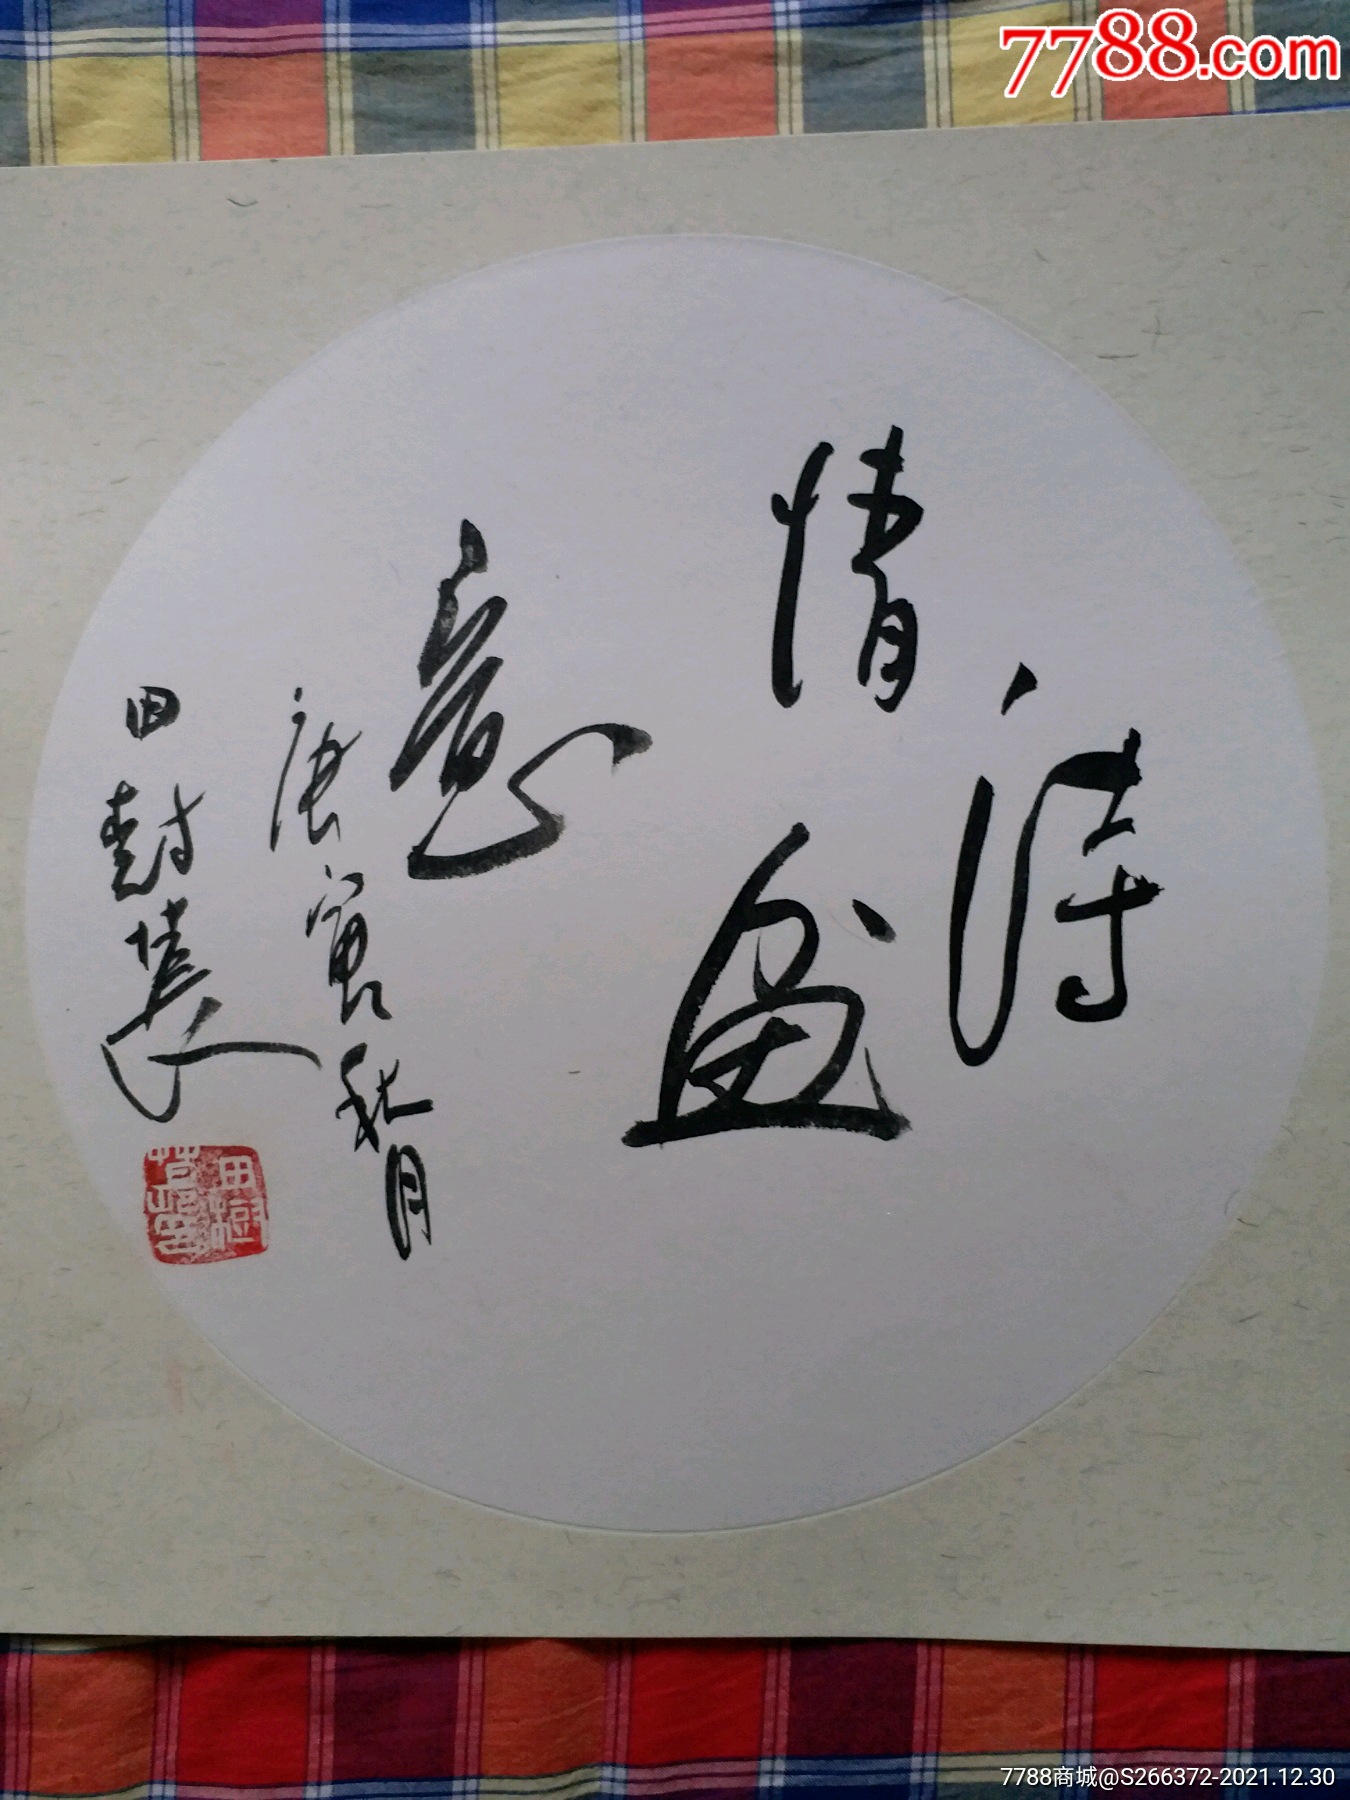 7788.com
诗
情画
意
庚寅秋月
田树苌
7788商城@S266372-2021.12.30